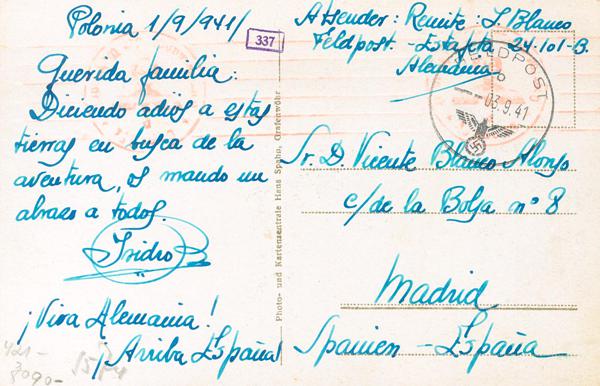 Polonia 1/9/941/
337
Querida familia:
Diciendo adiós a estas
tierras en busca de la
aventura, os mando un
abrazo a todos.
Isidro B
¡Viva Alemania!
¡Arriba España!
421-
3090-
Photo- und Kartenzentrale Hans Spahn, Grafenwöhr
Absender: Remite: I. Blanco
Feldpost. - Estafeta 24.101-B.
Alemania
FELDPOST
b
03.9.41
Sr. D. Vicente Blanco Alonso
c/ de la Bolsa nº 8
Madrid
Spanien - España